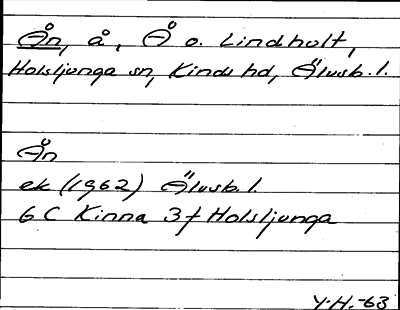 Ån, å, Å o. Lindholt,
Holsljunga sn, Kinds hd, Älvsb. l.
Ån
ek (1962) Älvsb. l.
6 C Kinna 3 f Holsljunga
Y.H.-63